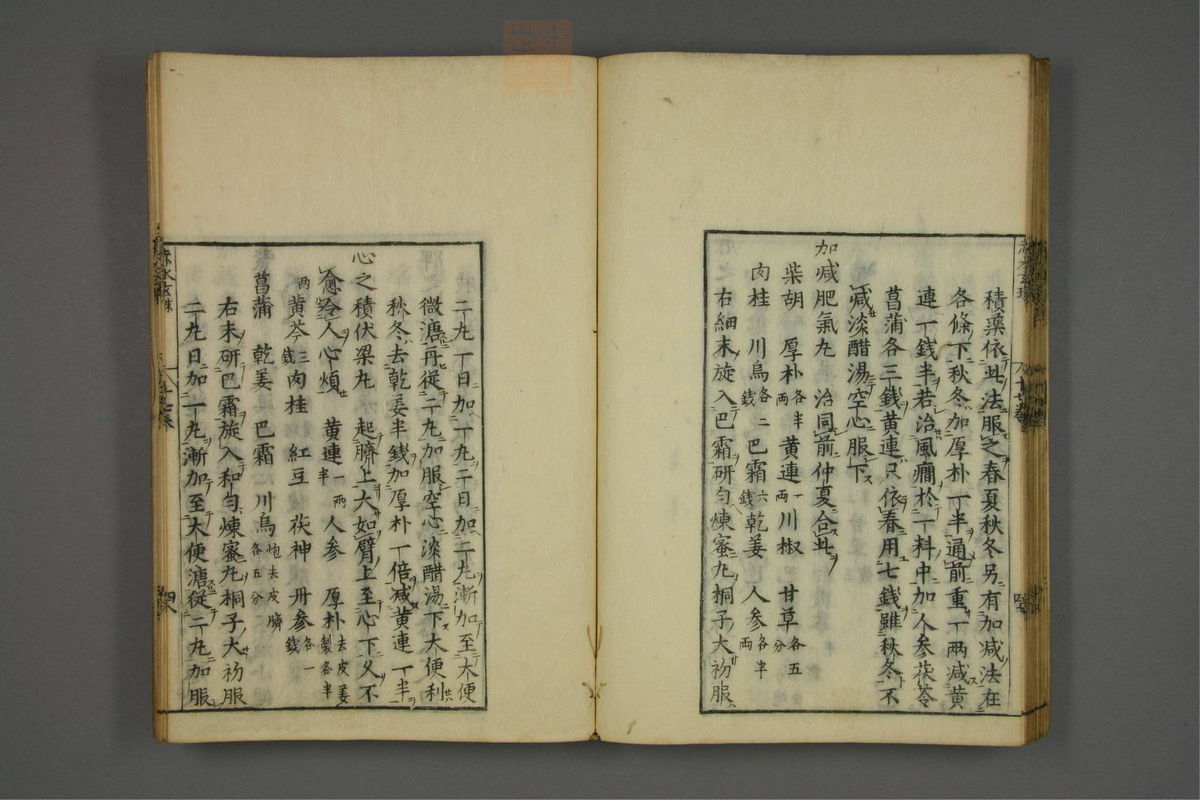 積藥依此法服之春夏秋冬另有加减法在
各條下秋冬加厚朴一半通前重一两减黄
連一錢半若治風癇於一料中加人参茯苓
菖蒲各三錢黄連只依春用七錢雖秋冬不
减淡醋湯空心服下
加减肥氣丸 治同前仲夏合此
柴胡 厚朴各半两 黄連一两 川椒 甘草各五分
肉桂 川烏各二錢 巴霜六錢 乾姜 人参各半两
右細末旋入巴霜研匀煉蜜丸桐子大初服
二丸一日加一丸二日加二丸漸加至大便
微溏再従二丸加服空心淡醋湯下大便利
秋冬去乾姜半錢加厚朴一倍减黄連一半
心之積伏梁丸 起臍上大如臂上至心下久不
愈令人心煩 黄連一两半 人参 厚朴去皮姜製各半
两 黄芩三錢 肉桂 紅豆 茯神 丹参各一錢
菖蒲 乾姜 巴霜 川烏炮去皮臍各五分
右末研巴霜旋入和匀煉蜜丸桐子大初服
二丸日加一丸漸加至大便溏従二丸加服